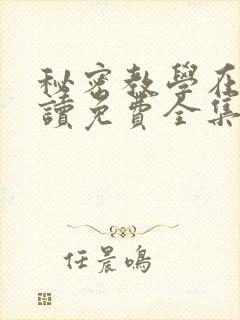 秘密教學在
讀免費全集
任晨鳴